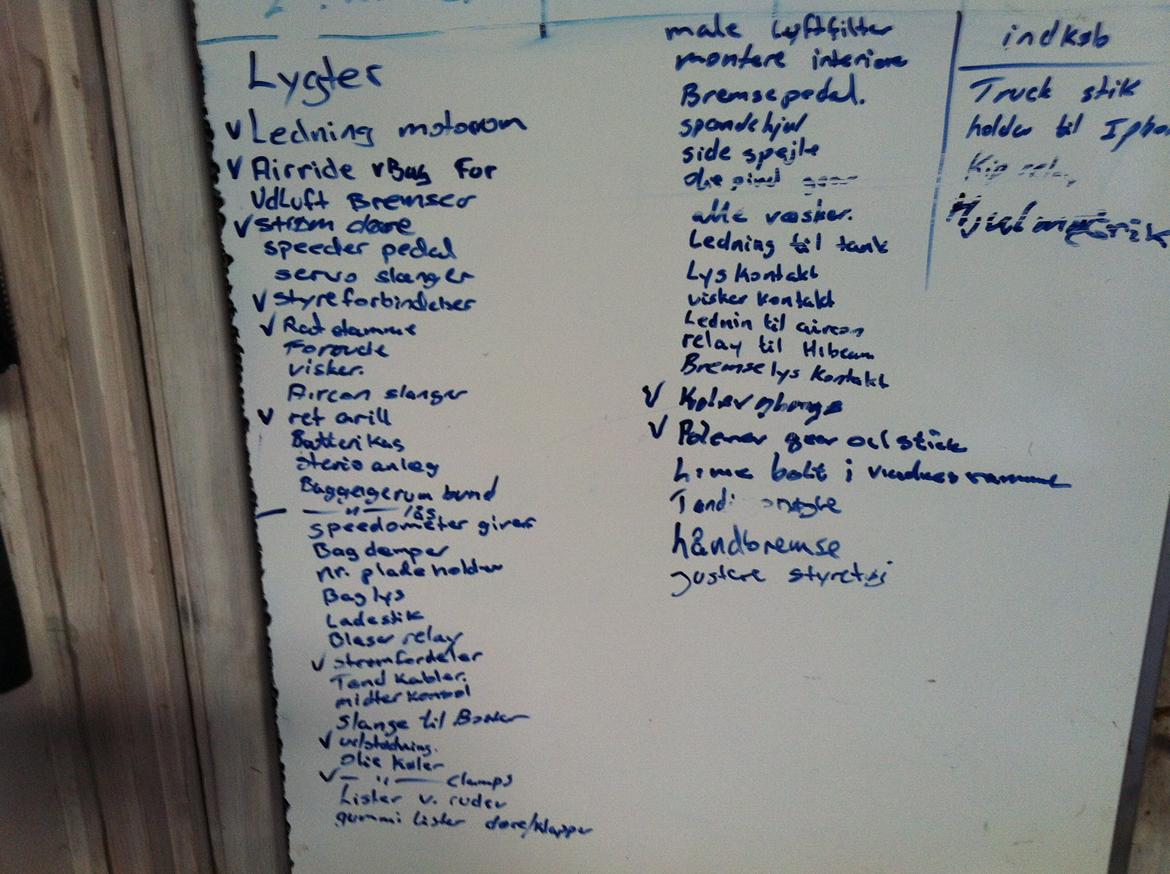 Lygter
v Ledning motorrum
v Airride v Bag For
Udluft Bremser
v strøm døre
speeder pedal
servo slanger
v styreforbindelser
v Rat stamme
Forrude
visker.
Aircon slanger
v ret grill
Batteri Kas
sterio anlæg
Baggagerum bund
— " — lås
speedometer giver
Bag demper
nr. plade holder
Bag lys
Ladestik
Blæser relay
v strømfordeler
Tænd Kabler.
midter konsol
Slange til
v udstødning.
Olie Køler
v — " — clamps
Lister v. ruder
gummi lister døre/klapper
male Lyftfilter
montere interiore
Bremse pedal.
side spejle
olie pind gear
alle væsker.
Ledning til tank
Lys Kontakt
visker kontakt
Lednin til aircon
relay til Hibeam
Bremse lys Kontakt
v Køler
v Polerer gear oil stick
Lime bolt i vinduesramme
Tænd
håndbremse
justere styretøj
indkøb
Truck stik
holder til Ipho
Kip relay